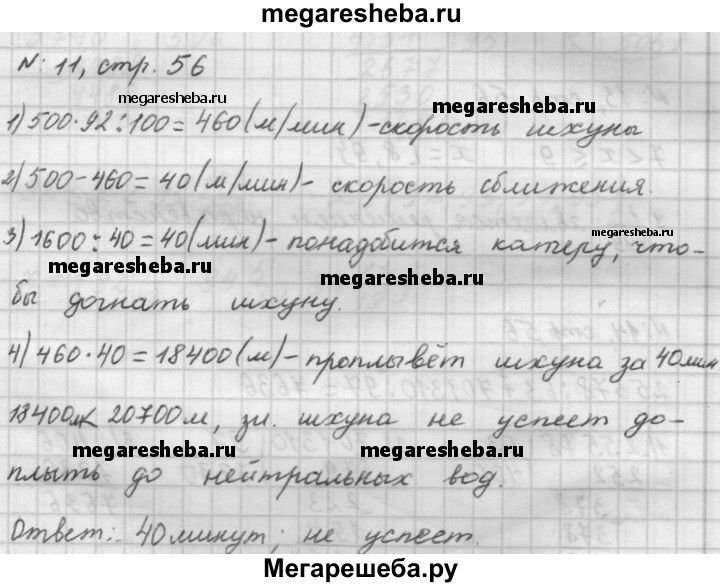 megaresheba.ru
№: 11, стр. 56
megaresheba.ru megaresheba.ru
1) 500·92:100=460(м/мин)-скорость шхуны
2) 500-460=40(м/мин)- скорость сближения.
megaresheba.ru
3) 1600:40=40(мин)-понадобится катеру, что-
megaresheba.ru megaresheba.ru
бы догнать шхуну.
4) 460·40=18400(м)-проплывёт шхуна за 40мин
18400м< 20700м, зн. шхуна не успеет до-
megaresheba.ru megaresheba.ru
плыть до нейтральных вод.
Ответ: 40минут; не успеет.
Мегарешеба.ру